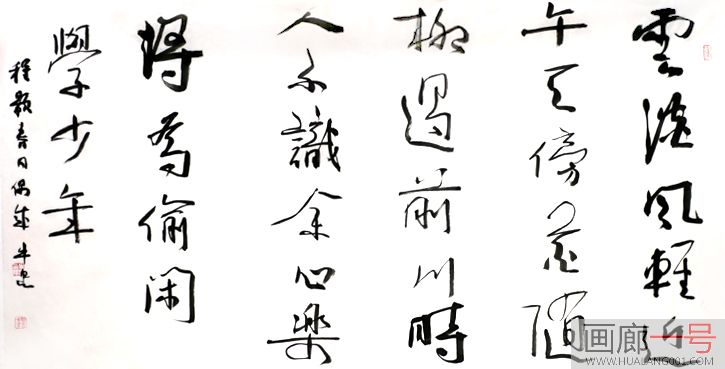 雲淡風輕近
午天傍花隨
柳過前川時
人不識余心樂
將為偷閑
學少年
程顥春日偶成 牛
画廊一号
WWW.HUALANG001.COM